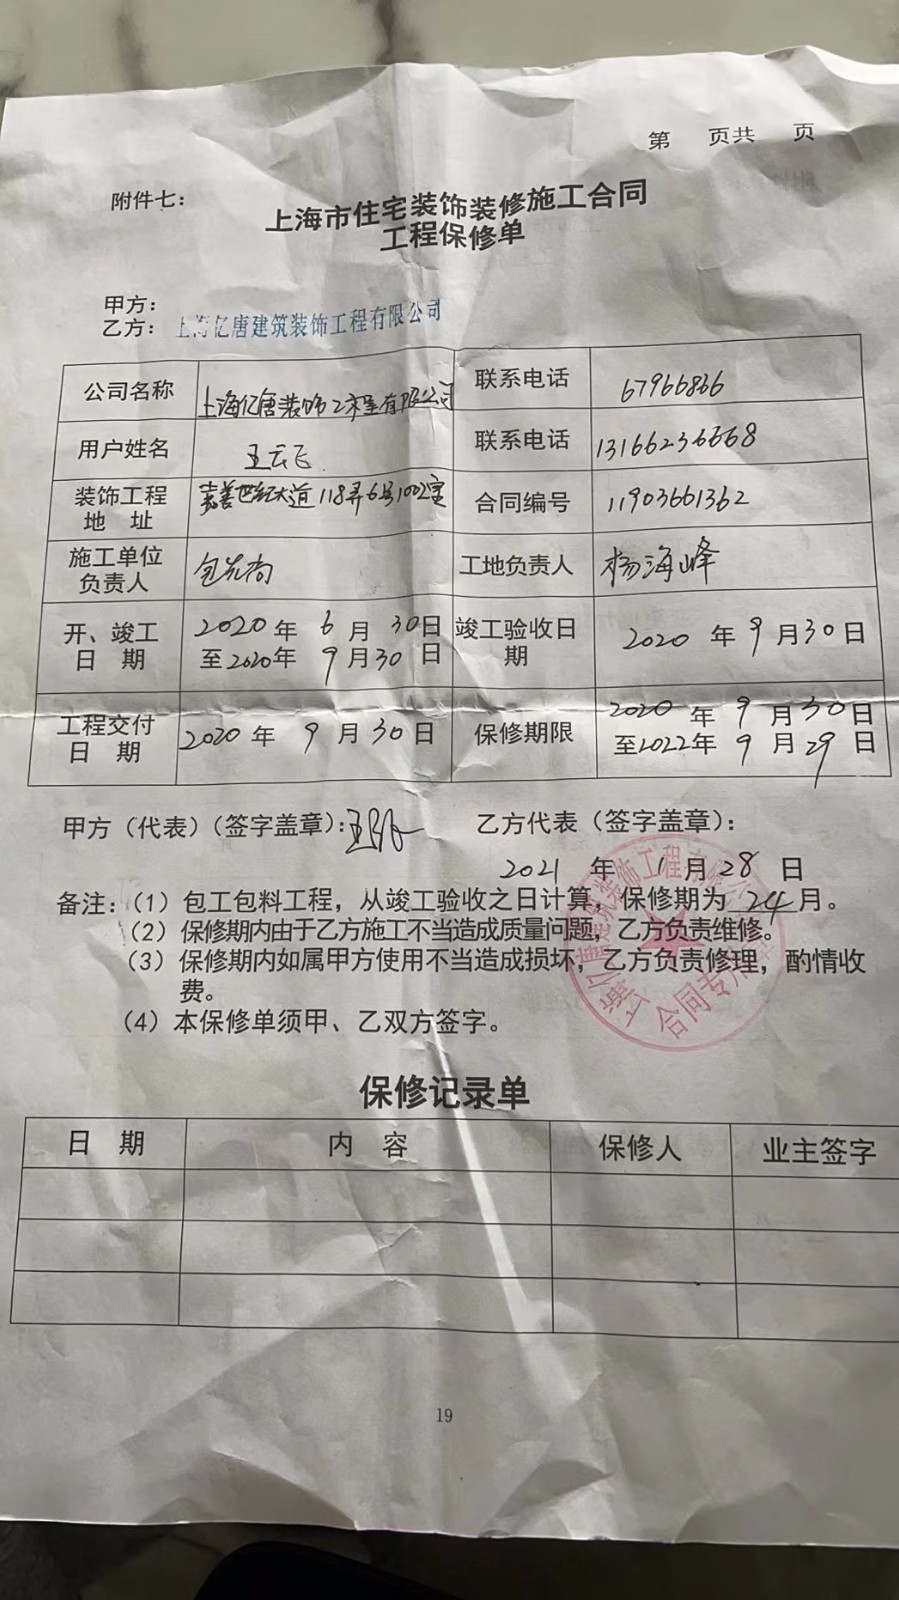 第 页共 页
附件七：
上海市住宅装饰装修施工合同
工程保修单
甲方：
乙方：上海亿唐建筑装饰工程有限公司
公司名称 上海亿唐装饰工程有限公司 联系电话 67966836
用户姓名 王云飞 联系电话 13166236668
装饰工程地 址 嘉善世纪大道118弄6号1002室 合同编号 11903661362
施工单位负责人 包先尚 工地负责人 杨海峰
开、竣工日 期 2020年 6月 30日至2020年 9月30日 竣工验收日期 2020年9月30日
工程交付日 期 2020年 9月30日 保修期限 2020年9月30日至2022年9月29日
甲方（代表）（签字盖章）： 乙方代表（签字盖章）：
2021 年 1月28日
备注：（1）包工包料工程，从竣工验收之日计算，保修期为 24 月。
（2）保修期内由于乙方施工不当造成质量问题，乙方负责维修。
（3）保修期内如属甲方使用不当造成损坏，乙方负责修理，酌情收
费。
（4）本保修单须甲、乙双方签字。
上海亿唐建筑装饰工程有限公司
合同专用章
保修记录单
日 期 内 容 保修人 业主签字
19